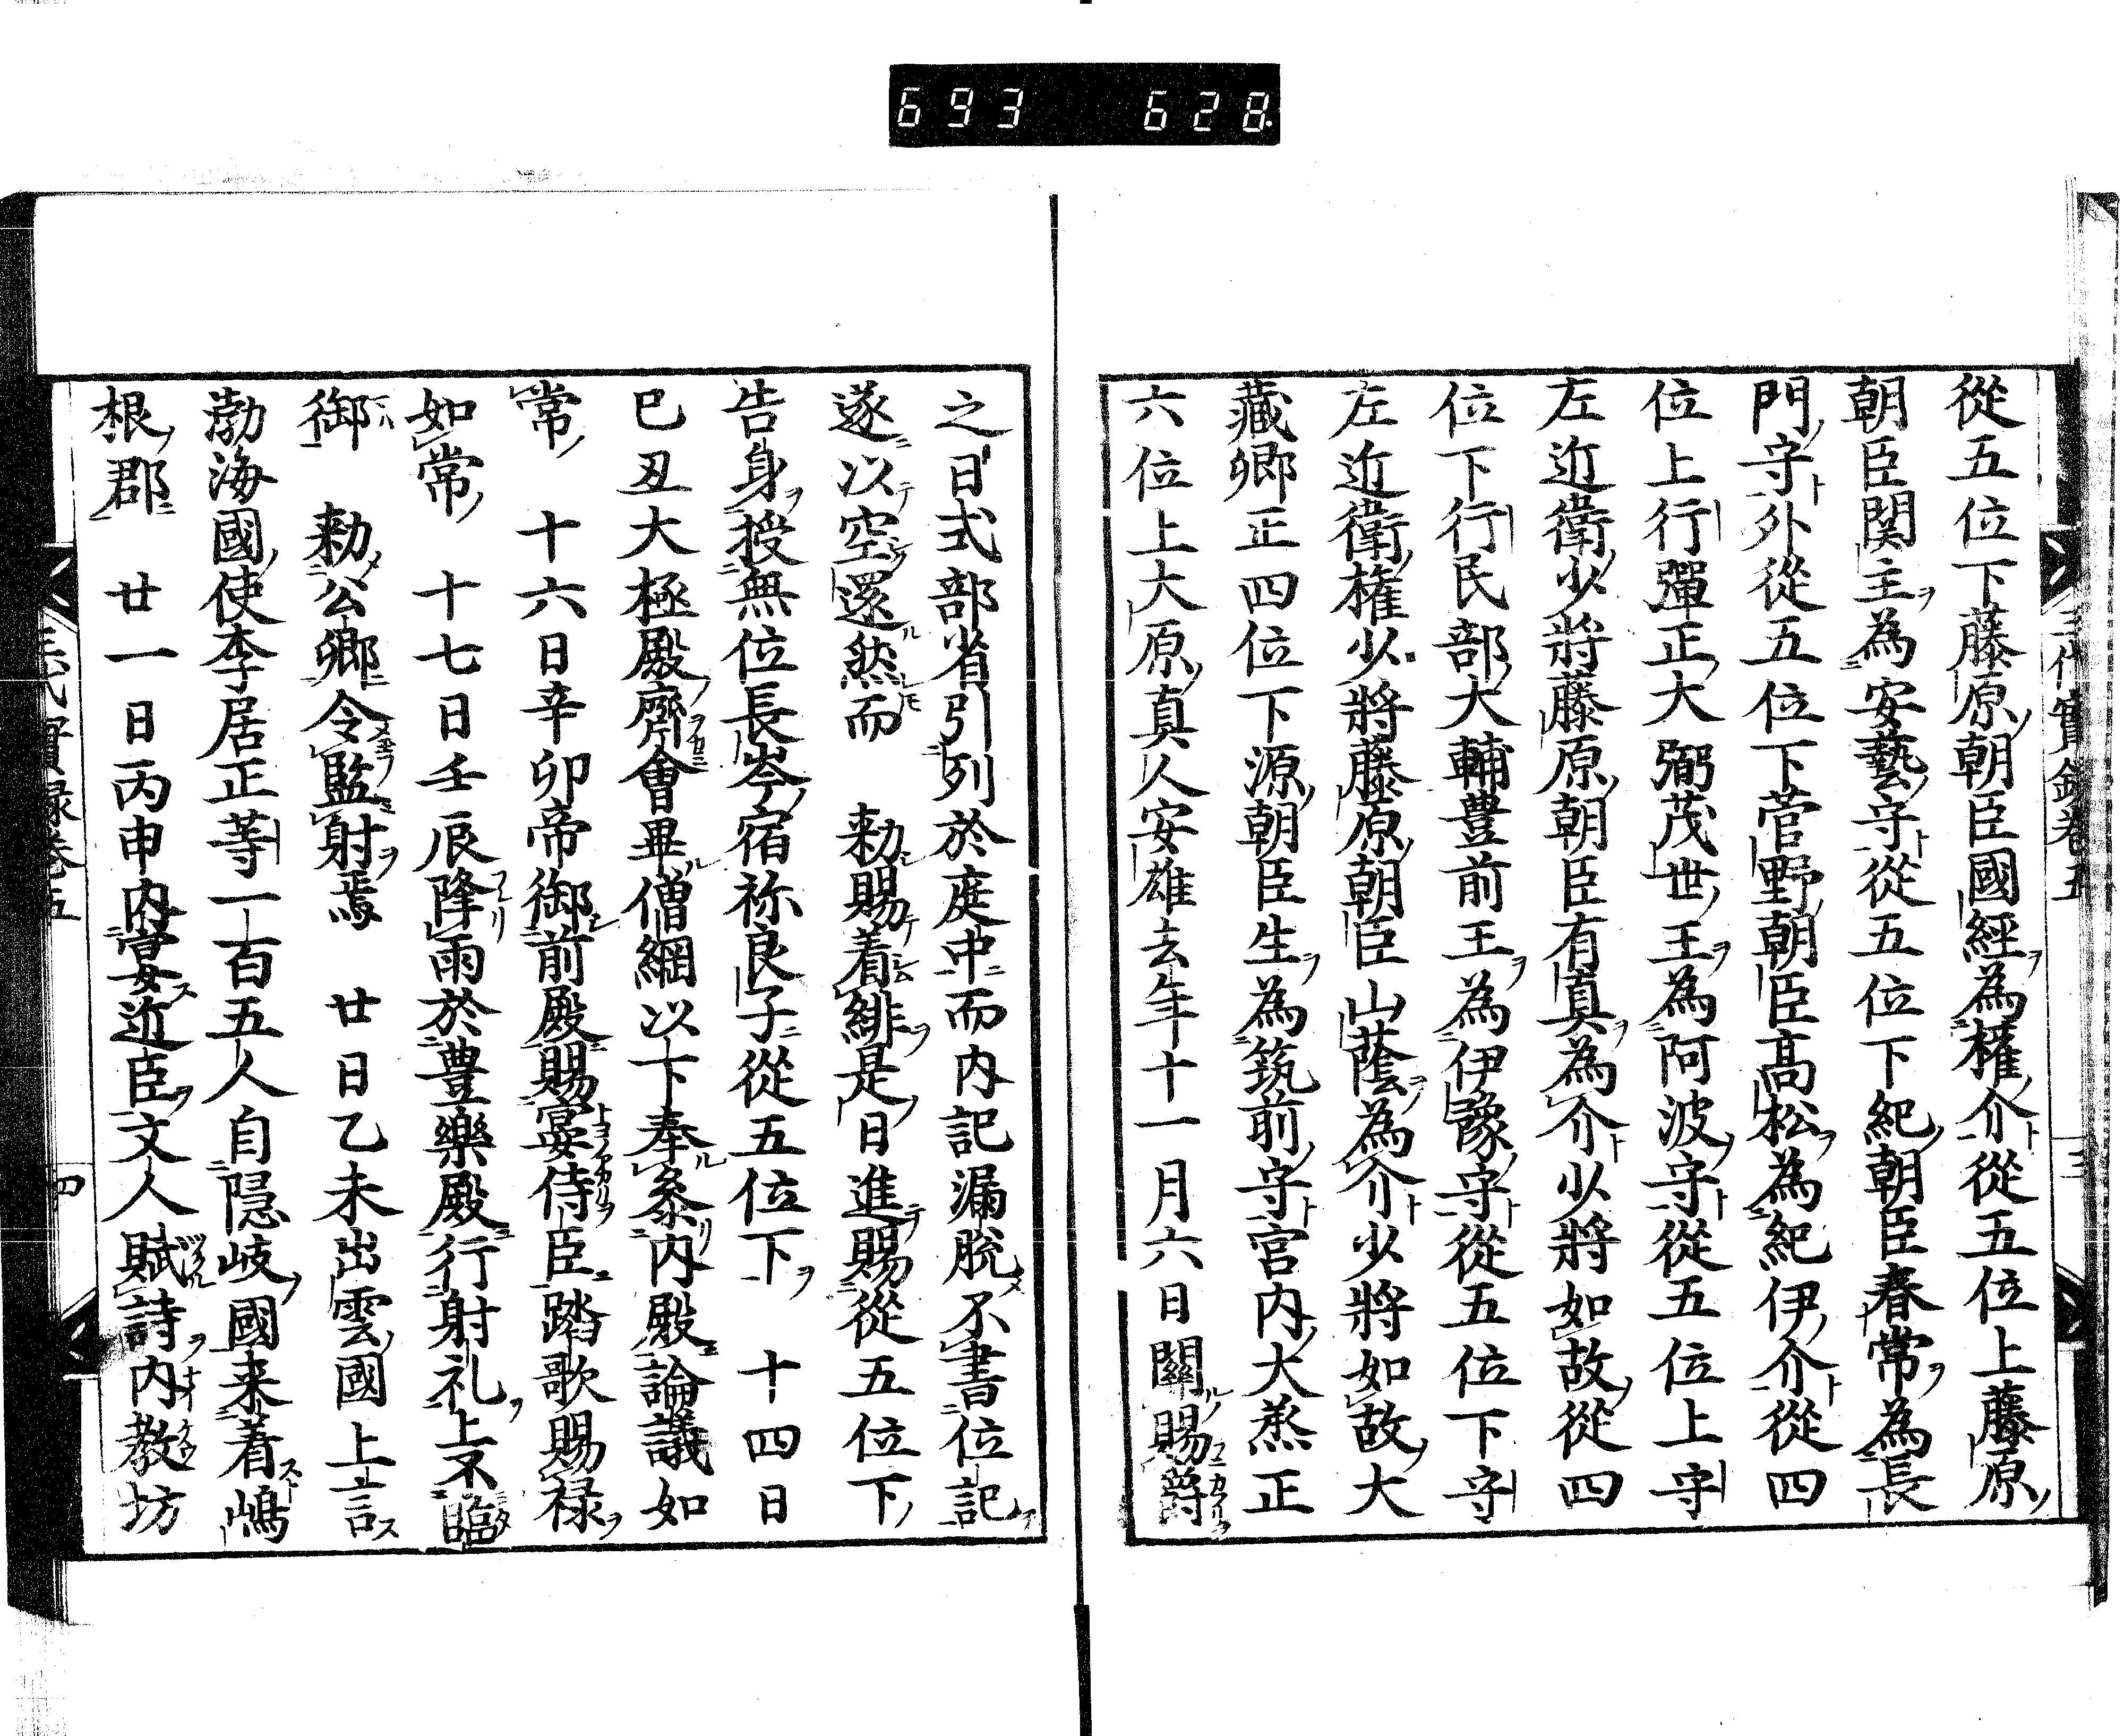 693 628
三代實録卷五 三
從五位下藤原朝臣國經為權介從五位上藤原
朝臣関主為安藝守從五位下紀朝臣春常為長
門守外從五位下菅野朝臣髙松為紀伊介從四
位上行彈正大弼茂世王為阿波守從五位上守
左近衛少將藤原朝臣有真為介少將如故從四
位下行民部大輔豊前王為伊豫守從五位下守
左近衛權少將藤原朝臣山蔭為介少將如故大
藏卿正四位下源朝臣生為筑前守宮内大蒸正
六位上大原真人安雄去年十一月六日關賜爵
之日式部省引列於庭中而内記漏脱不書位記
遂以空還然而　勅賜着緋是日進賜從五位下
告身授無位長岑宿祢良子從五位下　十四日
巳丑大極殿齋會畢僧綱以下奉参内殿論議如
常　十六日辛卯帝御前殿賜宴侍臣踏歌賜禄
如常　十七日壬辰降雨於豊樂殿行射礼上不臨
御　勅公卿令監射焉　廿日乙未出雲國上言
渤海國使李居正等一百五人自隠岐國来着嶋
根郡　廿一日丙申内宴近臣文人賦詩内教坊
三代實録卷五 四